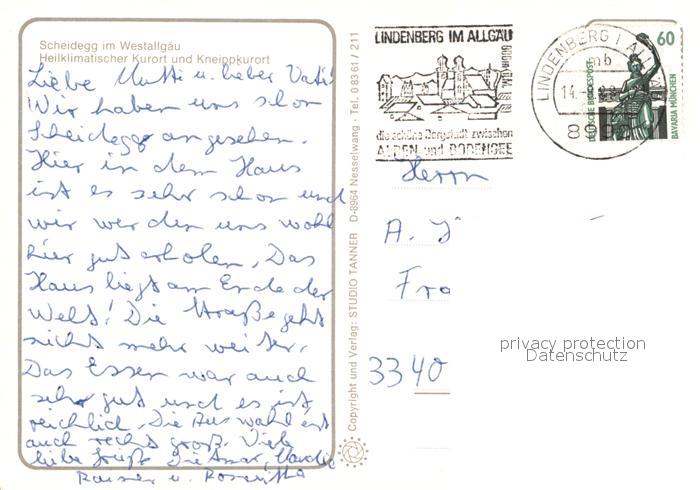 Scheidegg im Westallgäu
Heilklimatischer Kurort und Kneippkurort
Liebe Mutti u. lieber Vati!
Wir haben uns schon
Scheidegg angesehen.
Hier in dem Haus
ist es sehr schön und
wir werden uns wohl
hier gut erholen. Das
Haus liegt am Ende der
Welt! Die Straße geht
nicht mehr weiter.
Das Essen war auch
sehr gut und es ist
reichlich. Die Auswahl ist
auch recht groß. Viele
liebe Grüße Dietmar,
Rainer u. Roswitha
Copyright und Verlag: STUDIO TANNER D-8964 Nesselwang · Tel. 0 83 61 / 211
LINDENBERG IM ALLGÄU
die schöne Bergstadt zwischen
ALPEN und BODENSEE
LINDENBERG I AL
14.
60
DEUTSCHE BUNDESPOST
BAVARIA MÜNCHEN
Herrn
A. J
Fra
3340
privacy protection
Datenschutz